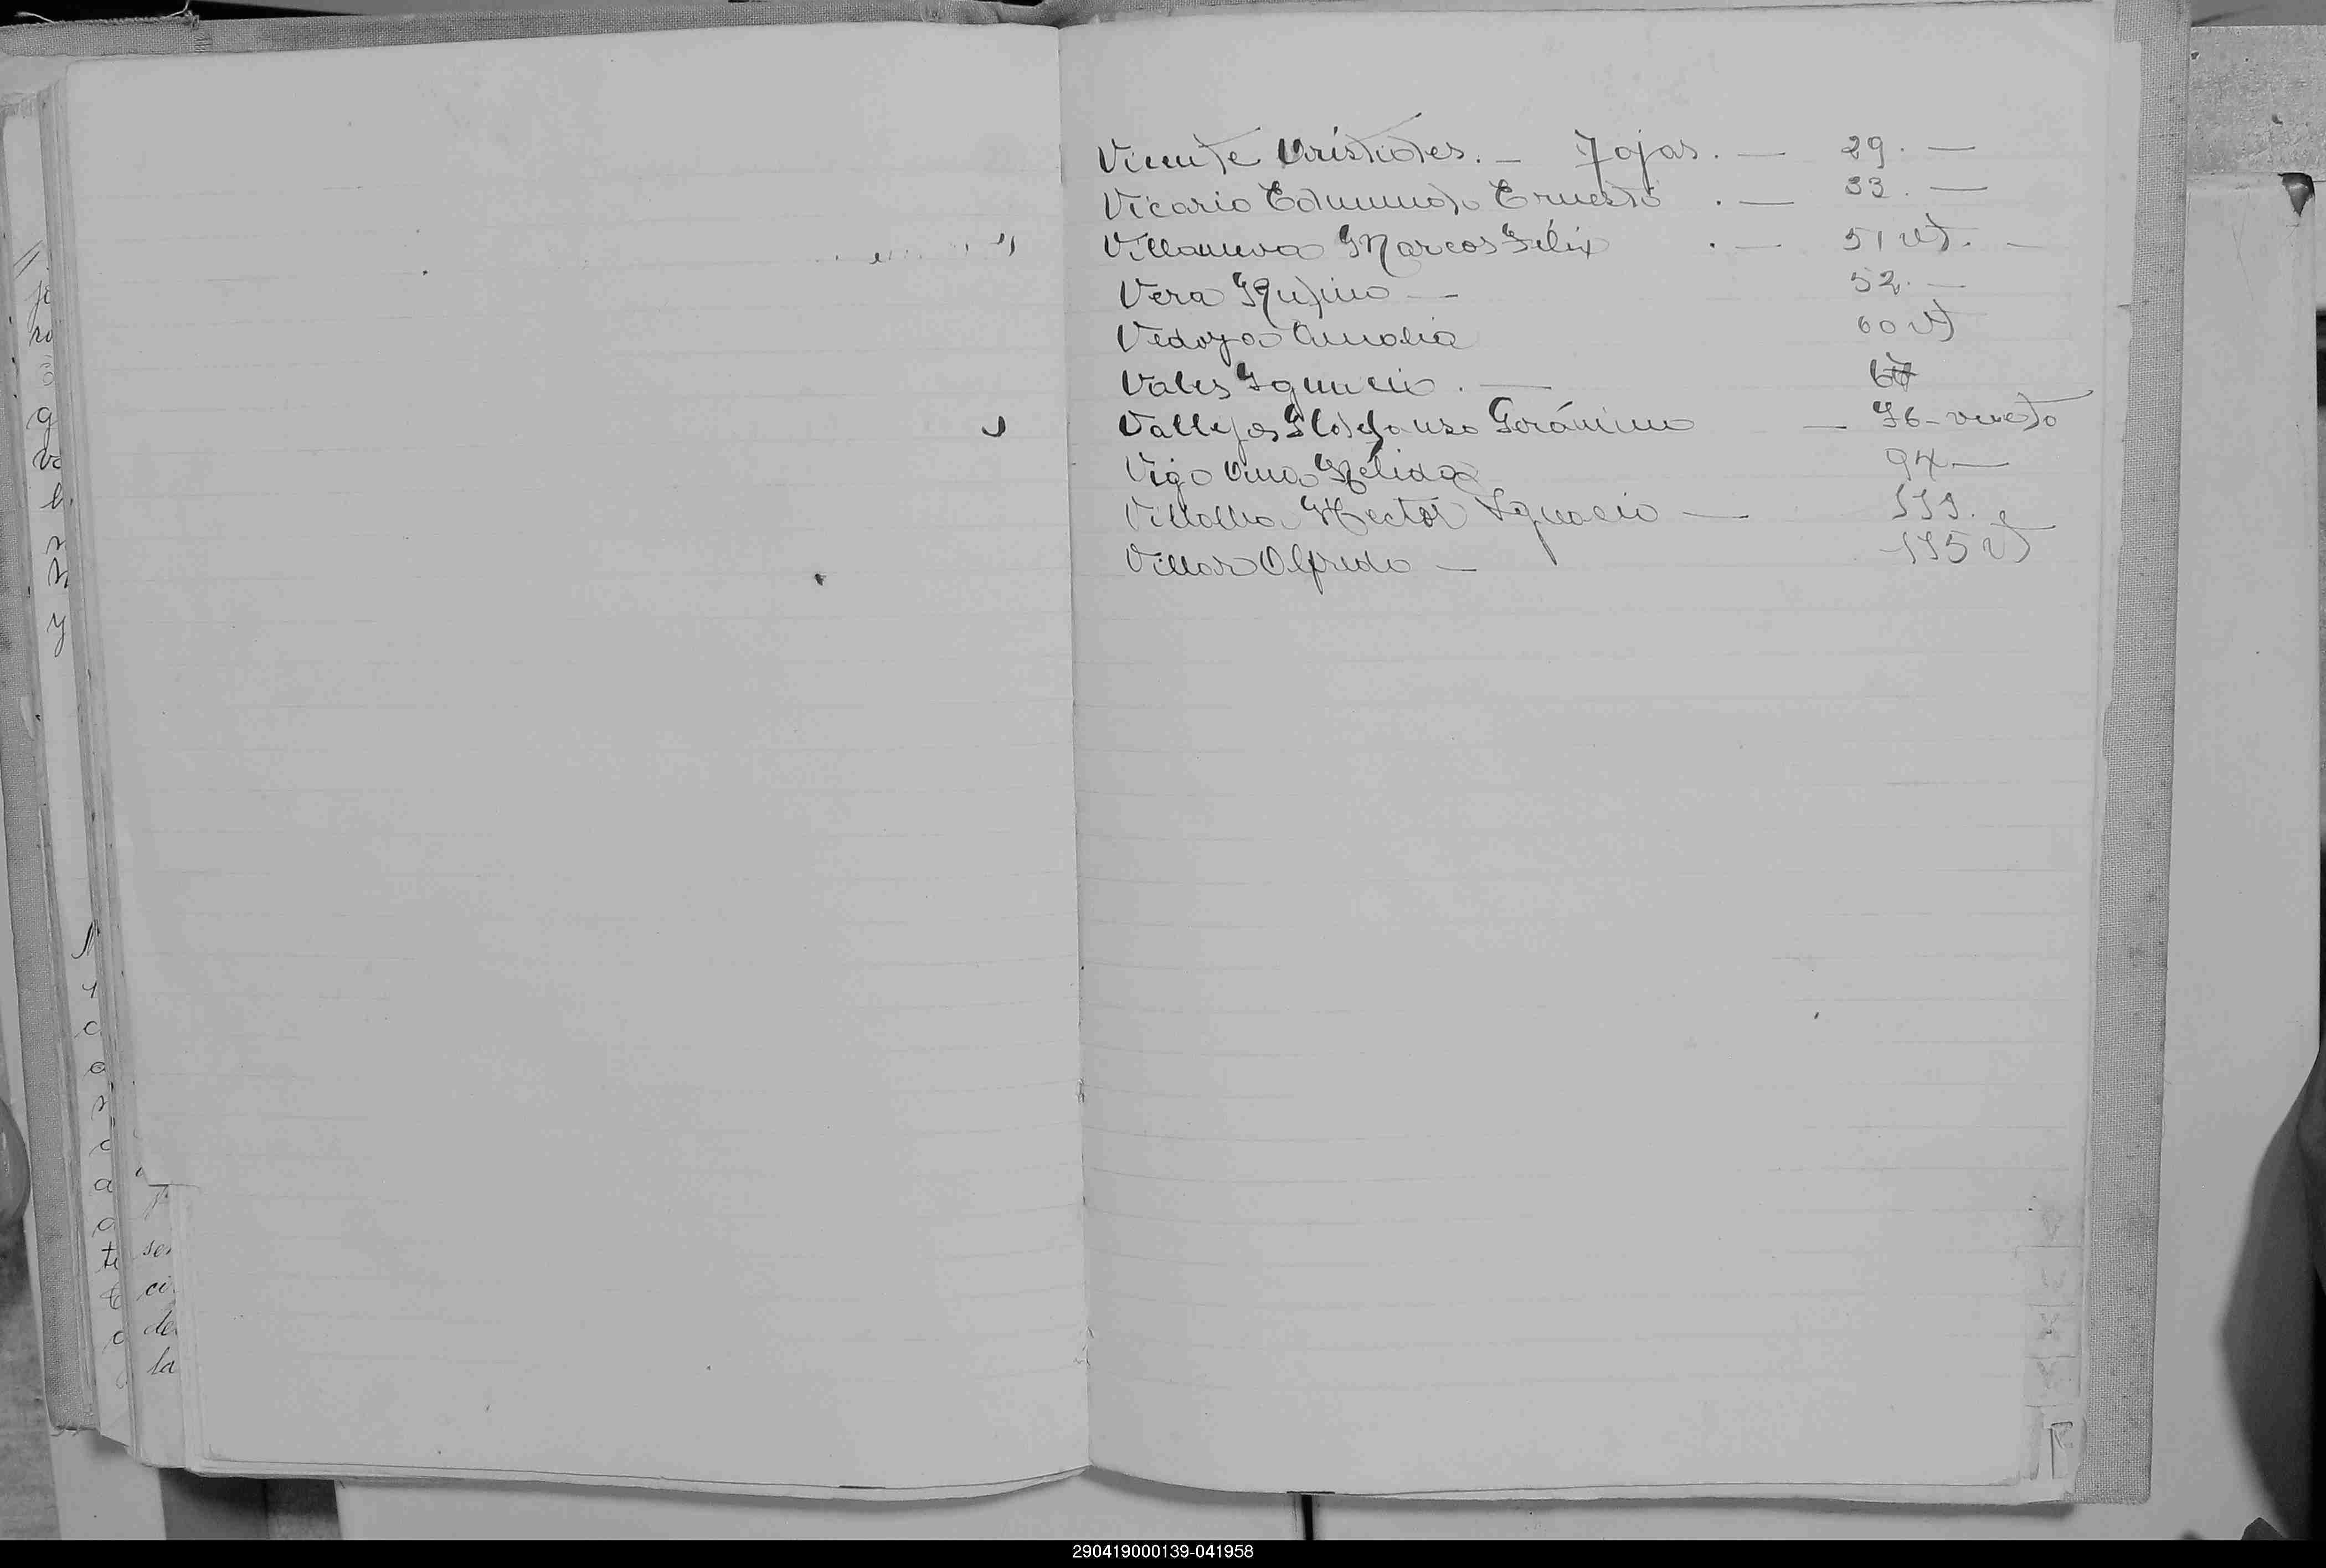 Vicente Aristides. — Fojas. — 29. —
Vicario Edmundo Ernesto . — 33. —
Villanueva Marcos Félix . — 51 vt. —
Vera Rufino — 52. —
Vedoya Amalia 60 vt
Vales Ignacio. —
Vallejos Ildefonso Gerónimo — 76 - vuelto
Vigo Ana Nélida 94 —
Villalba Hector Ignacio — 111.
Villar Alfredo — 115 vt
290419000139-041958